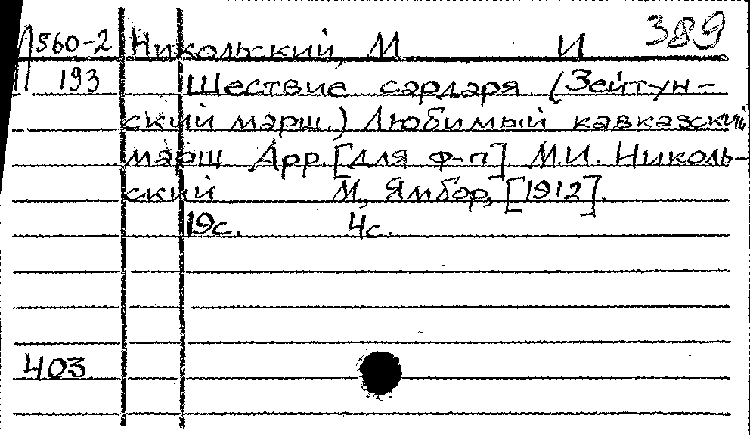 Л560-2 Никольский, М И 389
193 Шествие сардаря (Зейтун-
ский марш.) Любимый кавказский
марш. Арр. [для ф-п] М.И. Николь-
ский М, Ямбор, [1912].
19с. 4с.
403